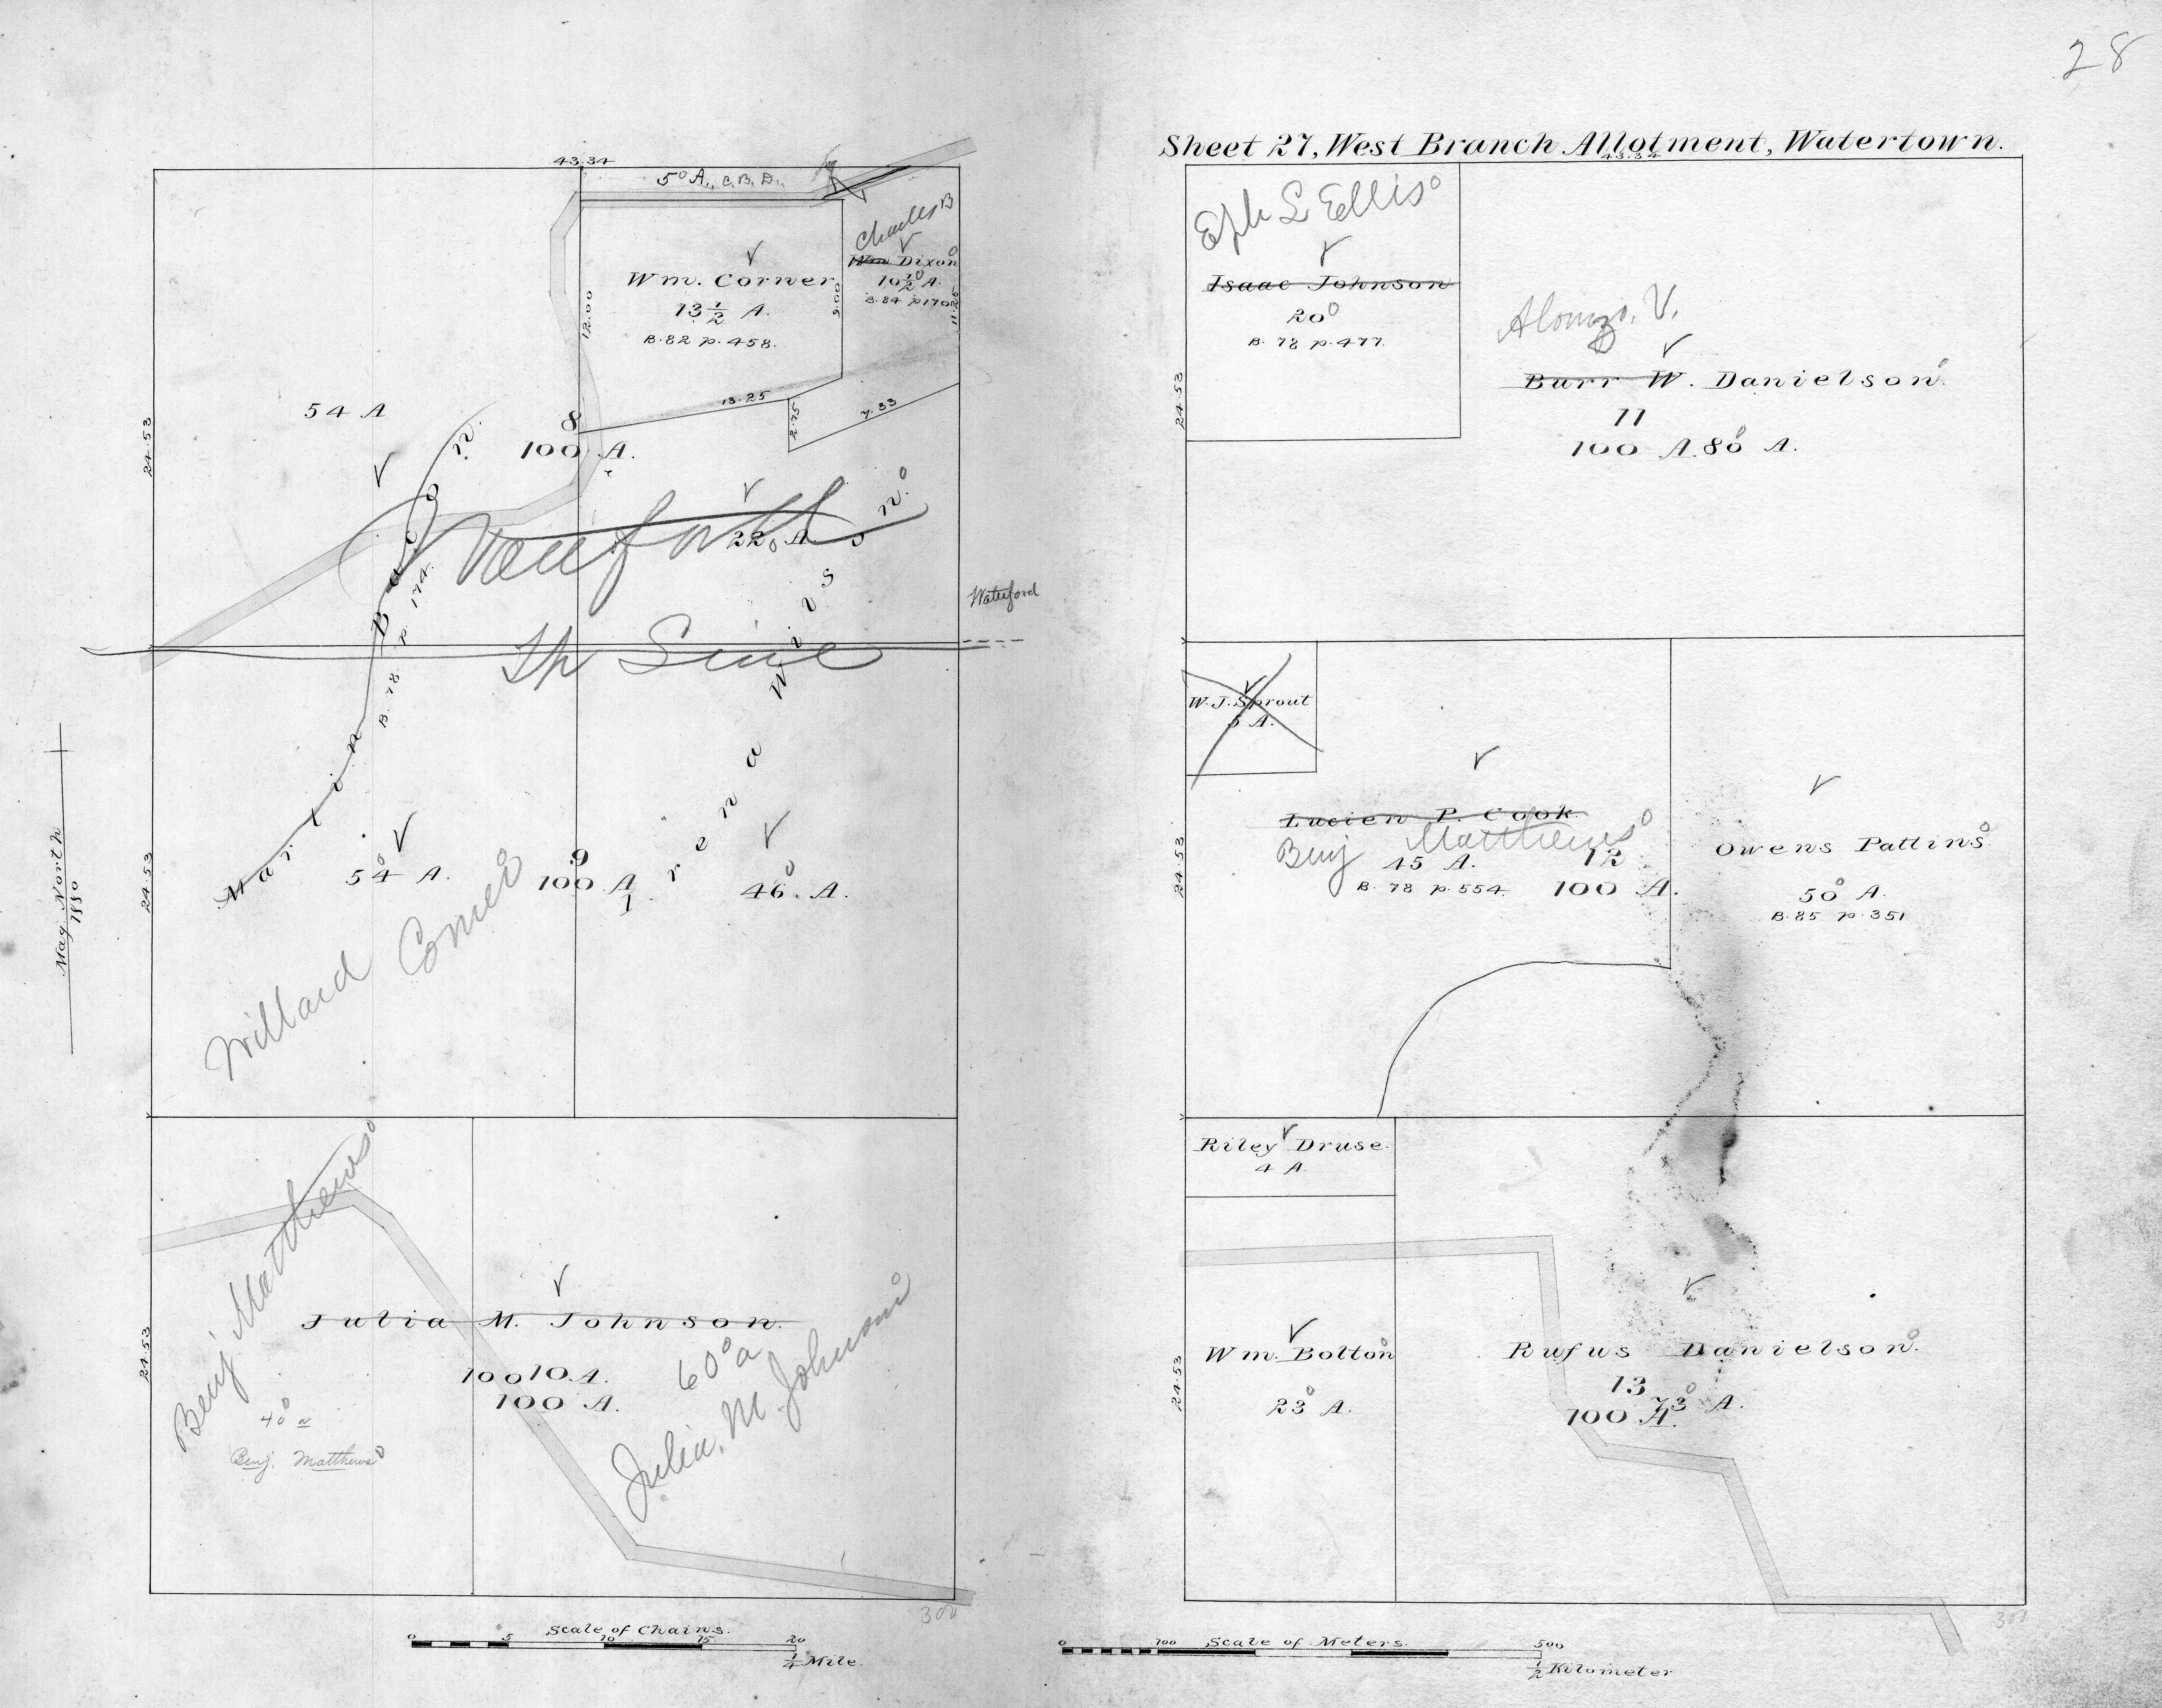 28
Sheet 27, West Branch Allotment, Watertown.
43.34
5° A., C. B. D.
Charles B
Wm Dixon
10½ A.
B. 84 p 170
11.20
Wm. Corner
13½ A.
B. 82 p. 458.
12.00
9.00
13.25
2.75
7.33
54 A
8
100 A.
24.53
Martin Bacon.
B. 78 p. 174.
22 A.
Waterford
Line
Irena Wilson.
54 A.
9
100 A
46. A.
24.53
Willard Corner
Mag. North
1880
Benj Matthews
Julia M. Johnson.
10 A.
100 A.
60 a
Julia. M Johnson
40 a
Benj. Matthews
24.53
300
Scale of Chains.
0 5 10 15 20
¼ Mile.
43.34
Eph L Ellis
Isaac Johnson
20
B. 78 p. 477.
24.53
Alonzo. V.
Burr W. Danielson.
11
100 A. 80 A.
W. J. Sprout
5 A.
Lucien P. Cook.
Benj Matthews
45 A.
12
B. 78 p. 554.
100 A.
24.53
Owens Pattins
50 A.
B. 85 p. 351
Riley Druse.
4 A.
Wm. Bolton
23 A.
24.53
Rufus Danielson.
13
73 A.
100 A.
Scale of Meters.
0 100 500
½ Kilometer